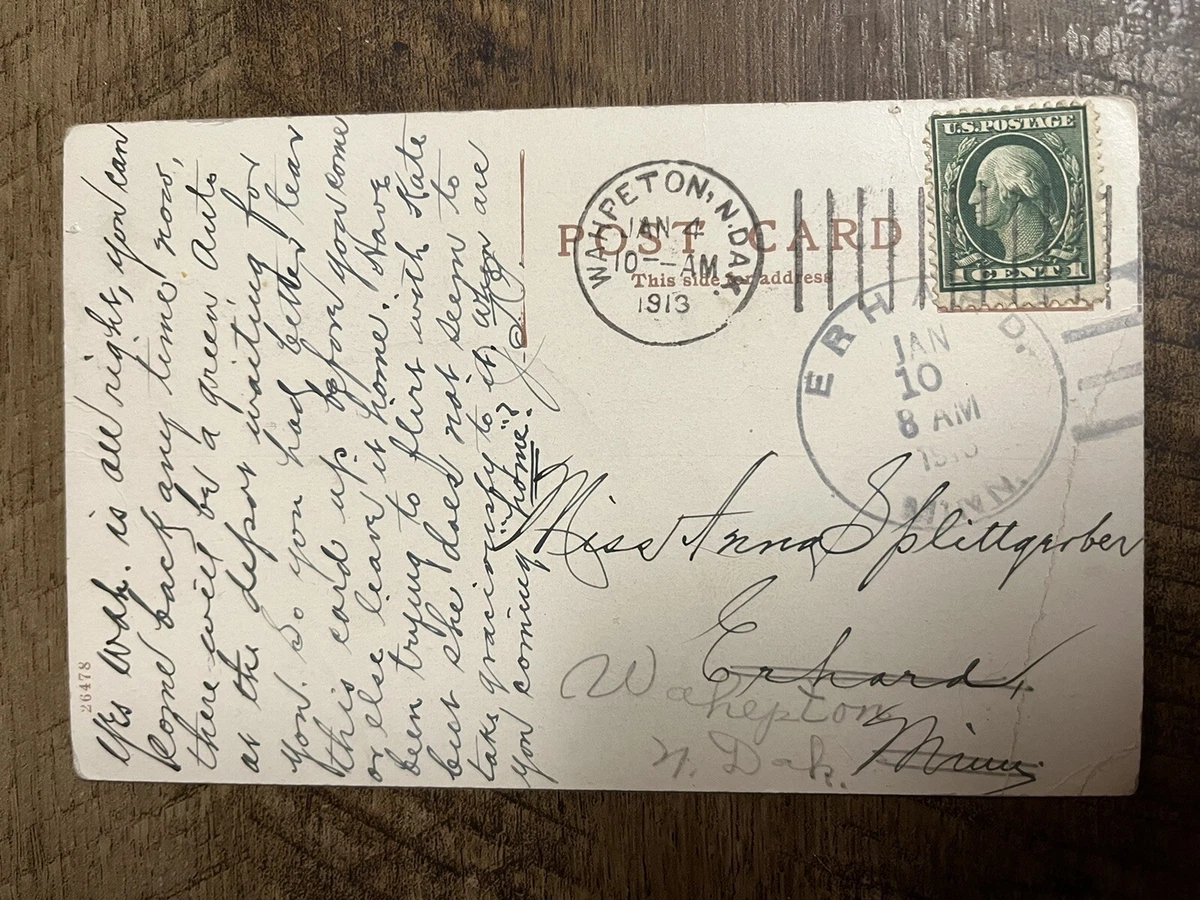 Yes Wah. is all right, you can
come back any time now,
there will be a green Auto
at the depot waiting for
you. So you had better tear
this card up before you come
or else leave it home. Have
been trying to flirt with Kate
but she does not seem to
take graciously to it. When are
you coming "home"?
26478
POST CARD
This side for address
WAHPETON, N. DAK.
JAN 4
10--AM
1913
U.S. POSTAGE
1 CENT 1
ERHARD.
JAN
10
8 AM
MINN.
Miss Anna Splittgerber
Erhard,
Minn.
Wahepton
N. Dak.